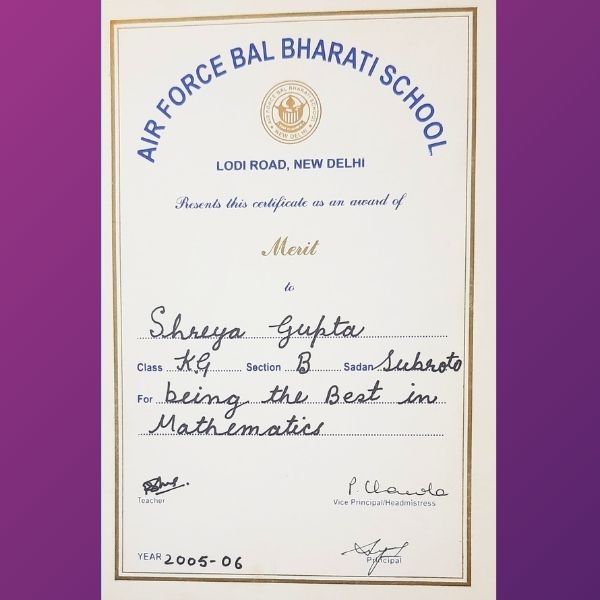 AIR FORCE BAL BHARATI SCHOOL
AIR FORCE BAL BHARATI SCHOOL
NEW DELHI
LODI ROAD, NEW DELHI
Presents this certificate as an award of
Merit
to
Shreya Gupta
Class KG Section B Sadan Subroto
For being the Best in
Mathematics
P. Chawla
Teacher
Vice Principal/Headmistress
Principal
YEAR 2005-06